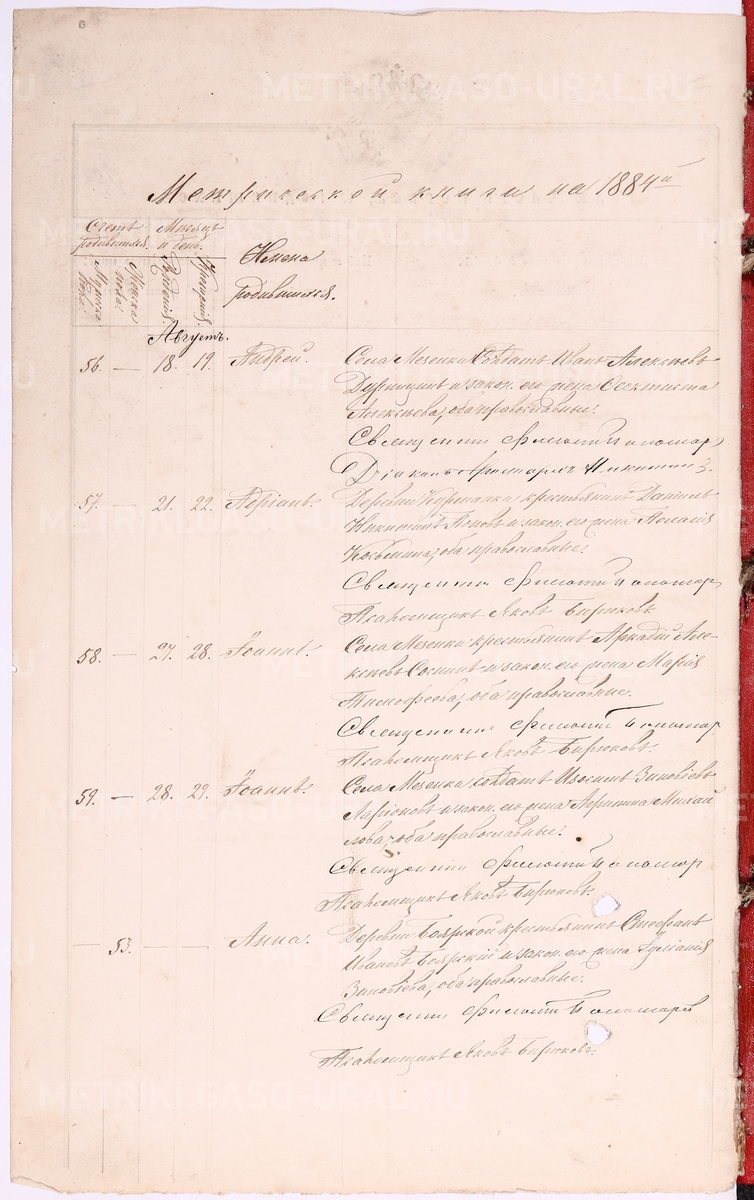 Метрической книги на 1884й
Счетъ родившихся.
Мужска пола.
Женска пола.
Мѣсяцъ и день.
Рожденія.
Крещенія.
Имена
родившихся.
Августъ.
56. — 18. 19. Андрей. Села Мезенки Солдатъ Иванъ Алексѣевъ
и закон. его жена Феоктиста
Алексѣева, оба православные.
Священникъ Филиппъ Пономар
Діаконъ Никитинъ.
57. — 21. 22. Адріанъ. Деревни Курманки крестьянинъ Даніилъ
Никитинъ Поповъ и закон. его жена Пелагія
Козьмина, оба православные.
Священникъ Филиппъ Пономар
Псаломщикъ Яковъ Бирюковъ
58. — 27. 28. Іоаннъ. Села Мезенки крестьянинъ Аркадій Але-
ксѣевъ и закон. его жена Марія
Тимофеева, оба православные.
Священникъ Филиппъ Пономар
Псаломщикъ Яковъ Бирюковъ
59. — 28. 29. Іоаннъ. Села Мезенки солдатъ Зиновіевъ
Ларіоновъ и закон. его жена Михай
лова, оба православные.
Священникъ Филиппъ Пономар
Псаломщикъ Яковъ Бирюковъ.
— 53. — Анна. Деревни Боярской крестьянинъ Стефанъ
Ивановъ Боярскій и закон. его жена Іуліанія
Зиновіева, оба православные.
Священникъ Филиппъ Пономарев
Псаломщикъ Яковъ Бирюковъ.
METRIKI.GASO-URAL.RU